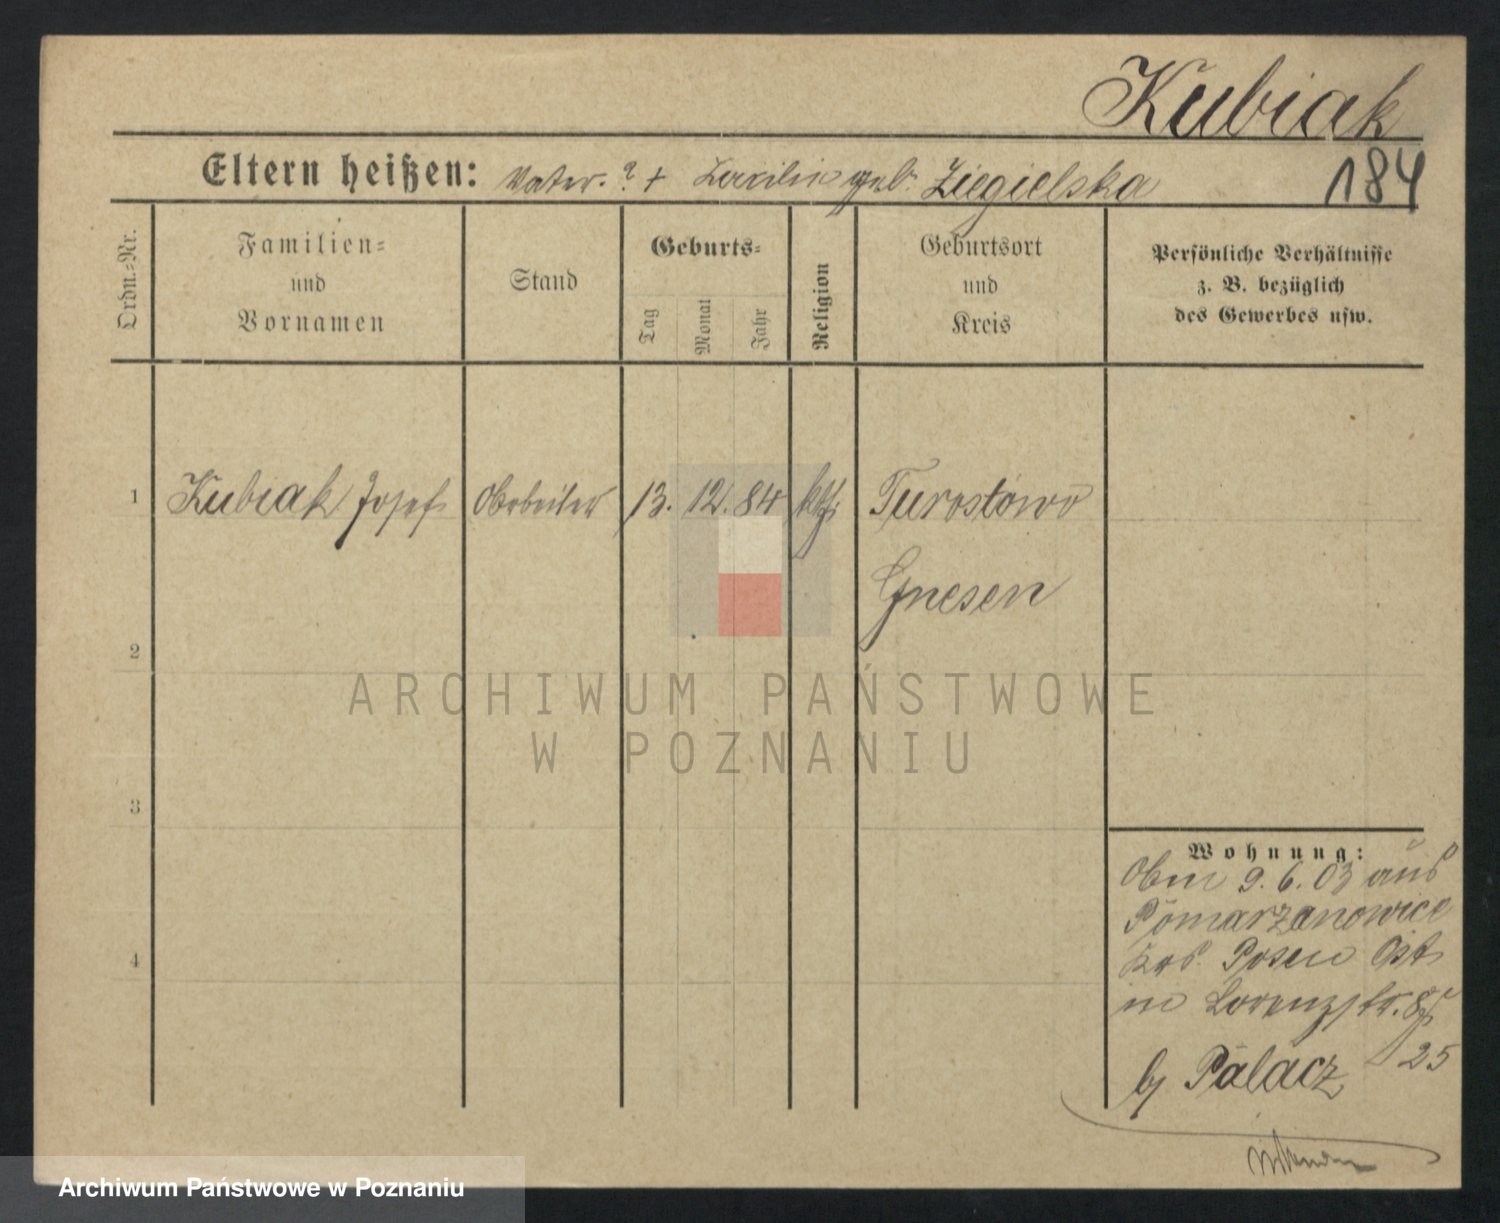 Kubiak
184
Eltern heißen: Vater ? + geb. Ziegielska
Ordn.=Nr.
Familien=
und
Vornamen
Stand
Geburts=
Tag
Monat
Jahr
Religion
Geburtsort
und
Kreis
Persönliche Verhältnisse
z. B. bezüglich
des Gewerbes usw.
1 Kubiak Josef Arbeiter 13. 12. 84 kth. Turostowo
Gnesen
2
3
4
Wohnung:
9. 6. 03 aus
Pomarzanowice
Krs. Posen Ost
in Lorenzstr.
25
bj Palacz
ARCHIWUM PAŃSTWOWE
W POZNANIU
Archiwum Państwowe w Poznaniu